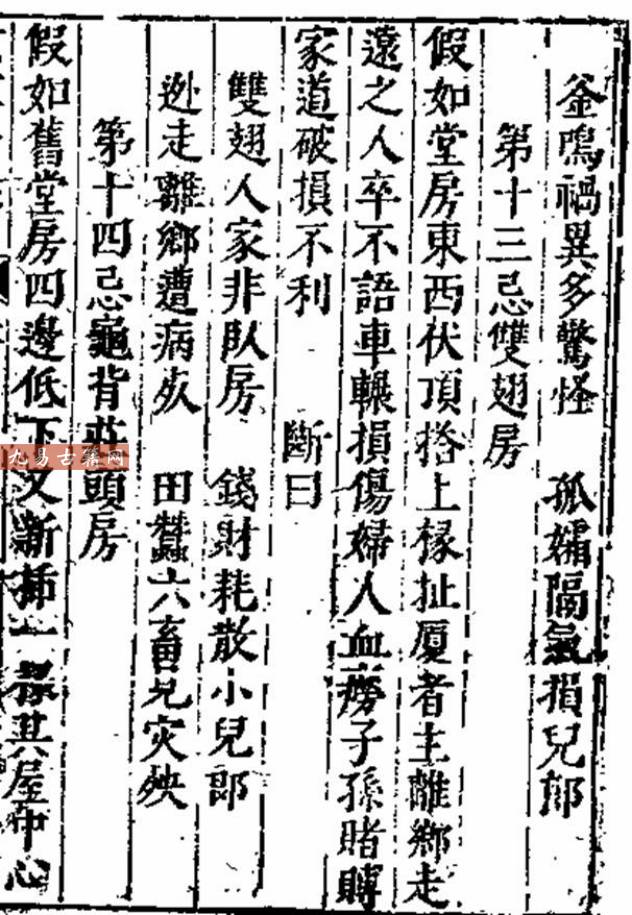 釜鳴禍異多驚怪 孤孀隔氣損兒郎
第十三忌雙翅房
假如堂房東西伏頂搭上椽扯厦者主離鄉走
遠之人卒不語車輾損傷婦人血癆子孫賭賻
家道破損不利 斷曰
雙翅人家非臥房 錢財耗散小兒郎
迯走離鄉遭病疚 田蠶六畜見灾殃
第十四忌龜背頭房
假如舊堂房四邊低下又新插一其屋中心
九易古籍网